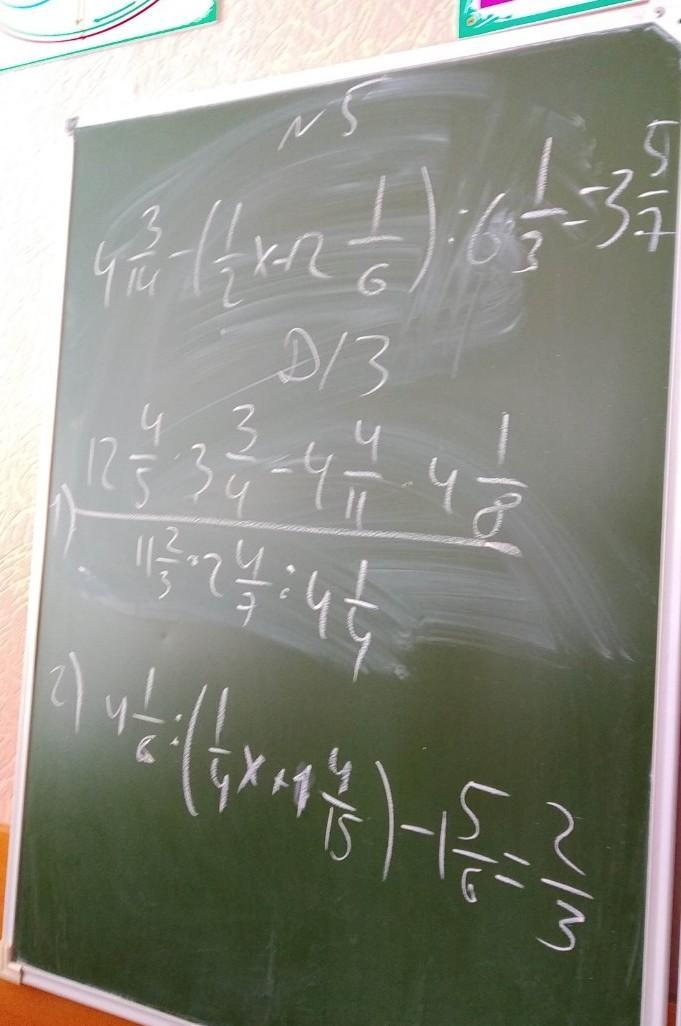 N5
4 3/14 - (1/2 x + 2 1/6) : 6 1/3 = 3 5/7
D/З
1) (12 4/5 · 3 3/4 - 4 4/11 · 4 1/8) / (11 2/3 · 2 4/7 : 4 1/4)
2) 4 1/6 : (1/4 x + 1 4/15) - 1 5/6 = 2/3